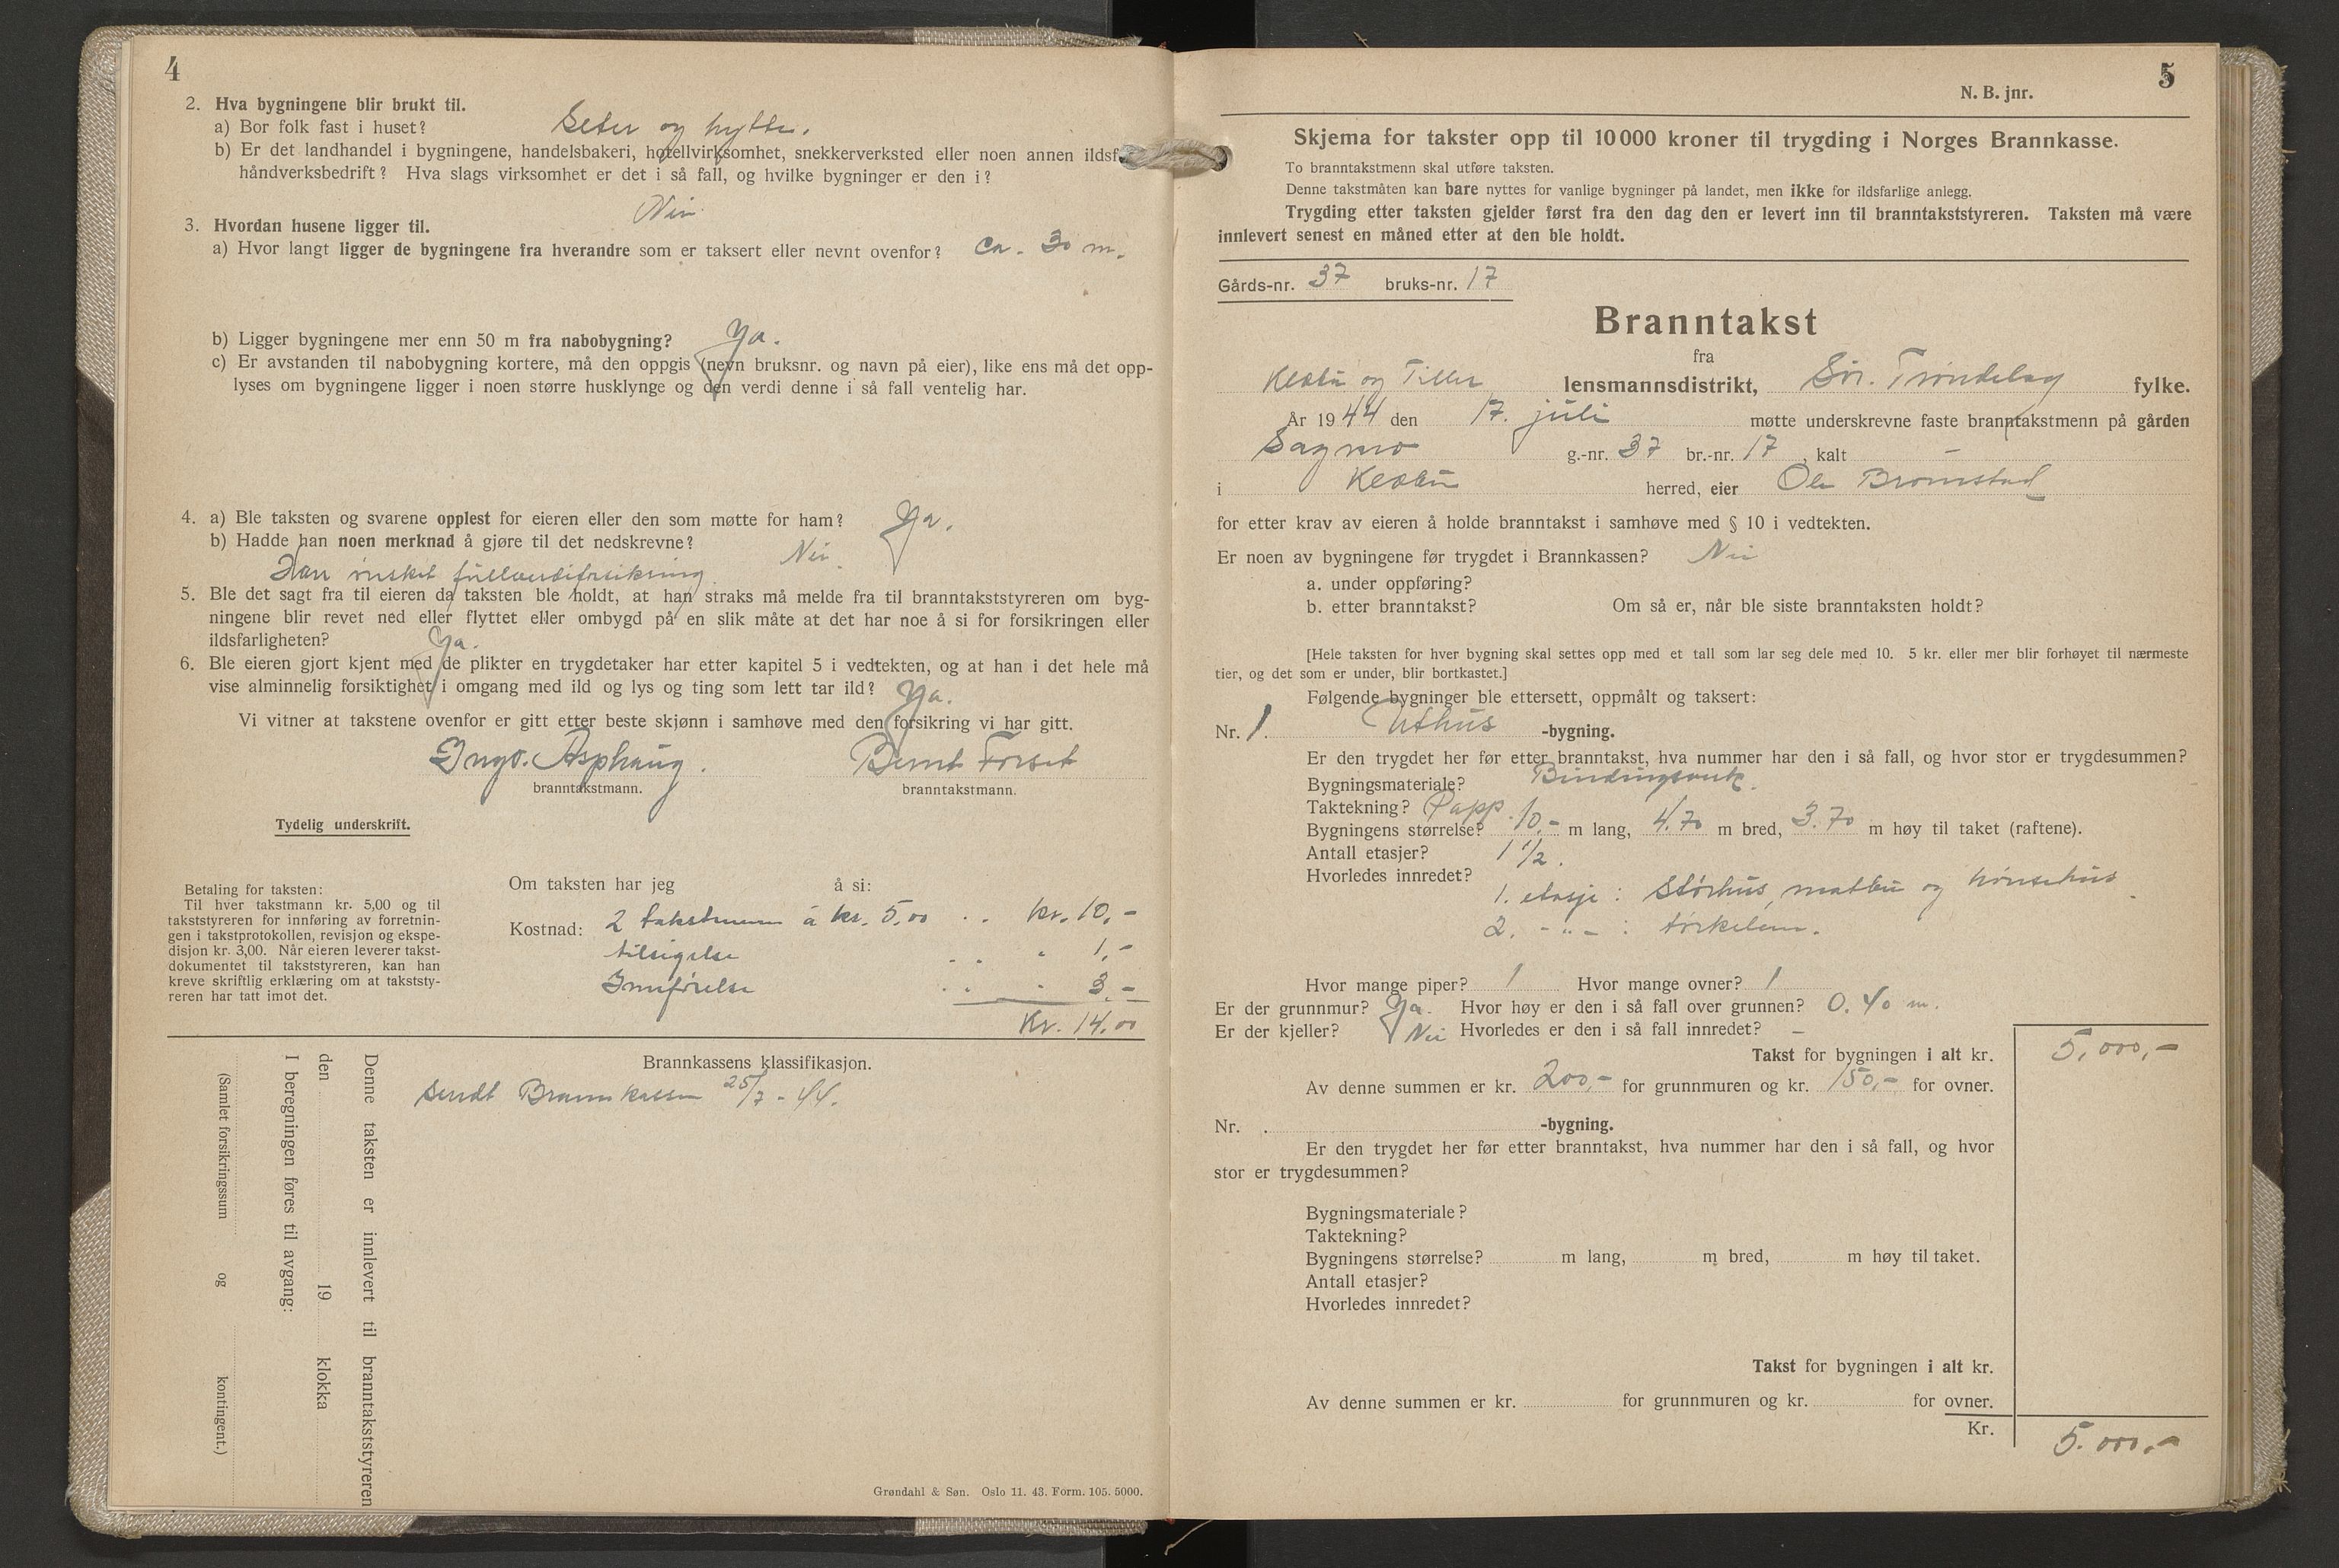 4
2. Hva bygningene blir brukt til.
a) Bor folk fast i huset? Seter og hytte.
b) Er det landhandel i bygningene, handelsbakeri, hotellvirksomhet, snekkerverksted eller noen annen ildsf
håndverksbedrift? Hva slags virksomhet er det i så fall, og hvilke bygninger er den i?
Nei
3. Hvordan husene ligger til.
a) Hvor langt ligger de bygningene fra hverandre som er taksert eller nevnt ovenfor? Ca. 30 m.
b) Ligger bygningene mer enn 50 m fra nabobygning? Ja.
c) Er avstanden til nabobygning kortere, må den oppgis (nevn bruksnr. og navn på eier), like ens må det opp-
lyses om bygningene ligger i noen større husklynge og den verdi denne i så fall ventelig har.
4. a) Ble taksten og svarene opplest for eieren eller den som møtte for ham? Ja.
b) Hadde han noen merknad å gjøre til det nedskrevne? Nei.
Han ønsket fullverdiforsikring.
5. Ble det sagt fra til eieren da taksten ble holdt, at han straks må melde fra til branntakststyreren om byg-
ningene blir revet ned eller flyttet eller ombygd på en slik måte at det har noe å si for forsikringen eller
ildsfarligheten? Ja.
6. Ble eieren gjort kjent med de plikter en trygdetaker har etter kapitel 5 i vedtekten, og at han i det hele må
vise alminnelig forsiktighet i omgang med ild og lys og ting som lett tar ild? Ja.
Vi vitner at takstene ovenfor er gitt etter beste skjønn i samhøve med den forsikring vi har gitt.
Ingv. Asphaug. Bernt Forset
branntakstmann. branntakstmann.
Tydelig underskrift.
Betaling for taksten:
Til hver takstmann kr. 5,00 og til
takststyreren for innføring av forretnin-
gen i takstprotokollen, revisjon og ekspe-
disjon kr. 3,00. Når eieren leverer takst-
dokumentet til takststyreren, kan han
kreve skriftlig erklæring om at takststy-
reren har tatt imot det.
Om taksten har jeg å si:
Kostnad: 2 takstmenn à kr. 5,00 . . kr. 10,-
tilsigelse . . . 1,-
Innførelse . . . 3,-
Kr. 14.00
Brannkassens klassifikasjon.
Sendt Brannkassen 25/7 - 44.
Denne taksten er innlevert til branntakststyreren
den 19 klokka
I beregningen føres til avgang:
(Samlet forsikringssum og kontingent.)
Grøndahl & Søn. Oslo 11. 43. Form. 105. 5000.
5
N. B. jnr.
Skjema for takster opp til 10 000 kroner til trygding i Norges Brannkasse.
To branntakstmenn skal utføre taksten.
Denne takstmåten kan bare nyttes for vanlige bygninger på landet, men ikke for ildsfarlige anlegg.
Trygding etter taksten gjelder først fra den dag den er levert inn til branntakststyreren. Taksten må være
innlevert senest en måned etter at den ble holdt.
Gårds-nr. 37 bruks-nr. 17
Branntakst
fra
Klæbu og Tiller lensmannsdistrikt, Sør-Trøndelag fylke.
År 1944 den 17. juli møtte underskrevne faste branntakstmenn på gården
Sagmo g.-nr. 37 br.-nr. 17, kalt -
i Klæbu herred, eier Ole Brømstad
for etter krav av eieren å holde branntakst i samhøve med § 10 i vedtekten.
Er noen av bygningene før trygdet i Brannkassen? Nei
a. under oppføring?
b. etter branntakst? Om så er, når ble siste branntaksten holdt?
[Hele taksten for hver bygning skal settes opp med et tall som lar seg dele med 10. 5 kr. eller mer blir forhøyet til nærmeste
tier, og det som er under, blir bortkastet.]
Følgende bygninger ble ettersett, oppmålt og taksert:
Nr. 1. Uthus -bygning.
Er den trygdet her før etter branntakst, hva nummer har den i så fall, og hvor stor er trygdesummen?
Bygningsmateriale? Bindingsverk.
Taktekning? Papp.
Bygningens størrelse? 10,- m lang, 4.70 m bred, 3.70 m høy til taket (raftene).
Antall etasjer? 1 1/2.
Hvorledes innredet? 1. etasje: Størhus, matbu og hønsehus.
2. -"- : tørkelem.
Hvor mange piper? 1 Hvor mange ovner? 1
Er der grunnmur? Ja. Hvor høy er den i så fall over grunnen? 0.40 m.
Er der kjeller? Nei Hvorledes er den i så fall innredet? -
Takst for bygningen i alt kr. 5.000,-
Av denne summen er kr. 200,- for grunnmuren og kr. 150,- for ovner.
Nr. . -bygning.
Er den trygdet her før etter branntakst, hva nummer har den i så fall, og hvor
stor er trygdesummen?
Bygningsmateriale?
Taktekning?
Bygningens størrelse? m lang, m bred, m høy til taket.
Antall etasjer?
Hvorledes innredet?
Takst for bygningen i alt kr.
Av denne summen er kr. for grunnmuren og kr. for ovner.
Kr. 5.000,-